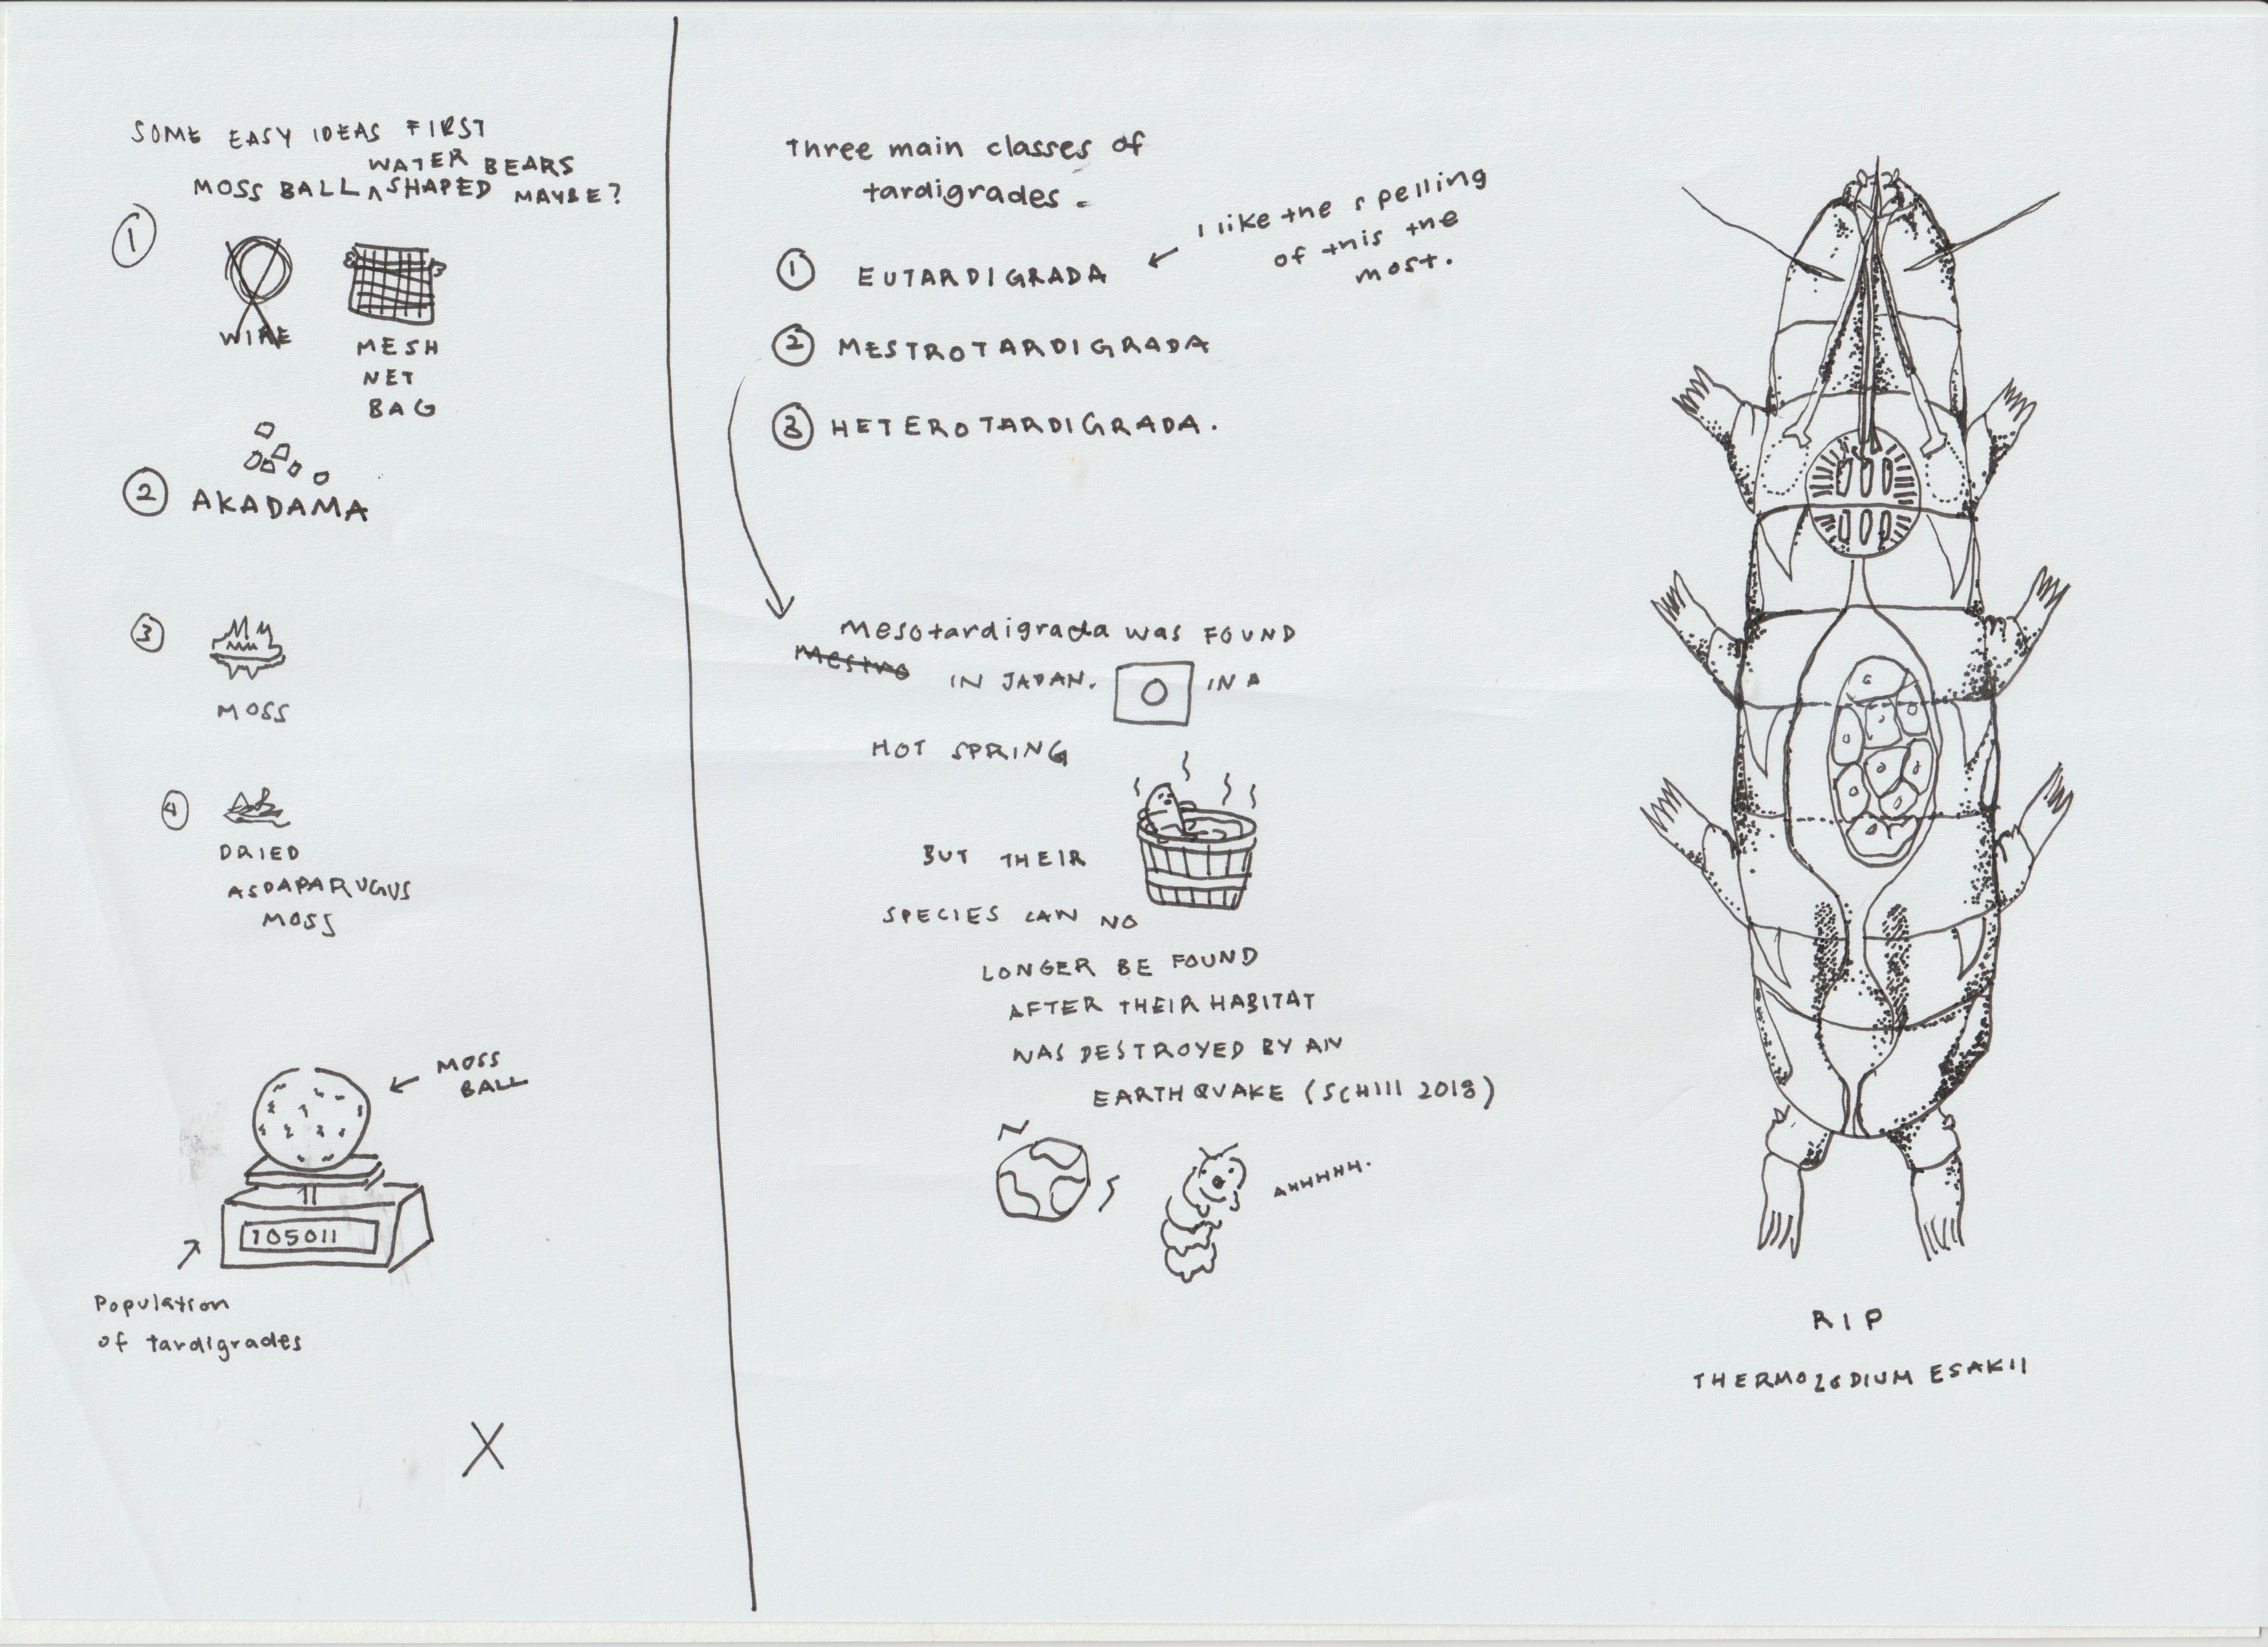 SOME EASY IDEAS FIRST
WATER BEARS
MOSS BALL ^ SHAPED MAYBE?
1
WIRE
MESH
NET
BAG
2 AKADAMA
3
MOSS
4
DRIED
ASDAPARUGUS
MOSS
MOSS
BALL
105011
Population
of tardigrades
X
Three main classes of
tardigrades.
1 EUTARDIGRADA
I like the spelling
of this the
most.
2 MESTROTARDIGRADA
3 HETEROTARDIGRADA.
Mesotardigrada was FOUND
Mestro
IN JAPAN. IN A
HOT SPRING
BUT THEIR
SPECIES CAN NO
LONGER BE FOUND
AFTER THEIR HABITAT
WAS DESTROYED BY AN
EARTHQUAKE (SCHILL 2018)
AHHHHH.
RIP
THERMOZODIUM ESAKII